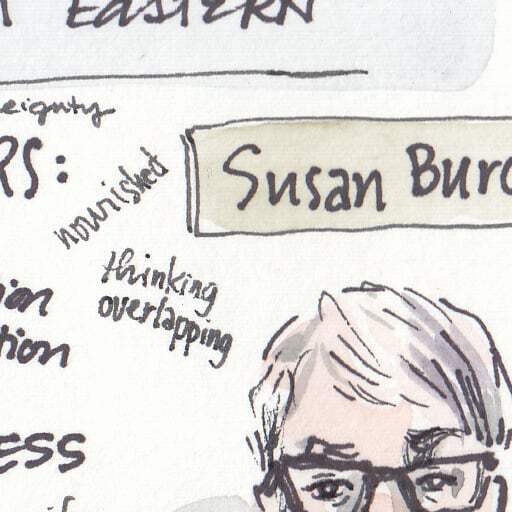 EASTERN
eignty
RS:
nourished
Susan Burc
thinking
overlapping
ion
tion
ESS